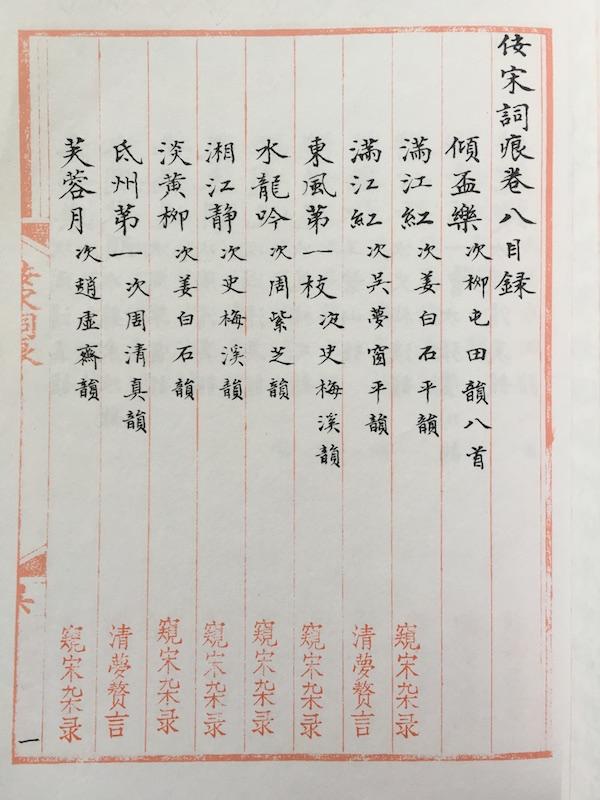 佞宋詞痕卷八目録
傾盃樂次柳屯田韻八首
滿江紅次姜白石平韻
窺宋枽录
滿江紅次吳夢窗平韻
清夢贅言
東風苐一枝次史梅溪韻
窺宋枽录
水龍吟次周紫芝韻
窺宋枽录
湘江静次史梅溪韻
窺宋枽录
淡黄栁次姜白石韻
窺宋枽录
氐州苐一次周清真韻
清夢贅言
芙蓉月次趙虛齋韻
窺宋枽录
一